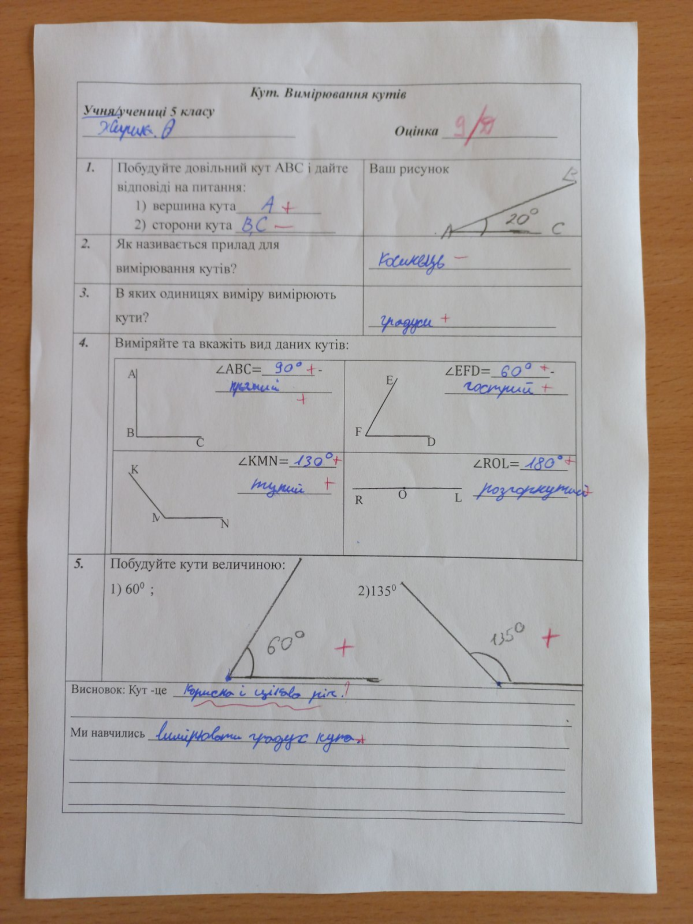 Кут. Вимірювання кутів
Учня/учениці 5 класу
Оцінка 9/Д
1. Побудуйте довільний кут АВС і дайте
відповіді на питання:
1) вершина кута А +
2) сторони кута В,С —
Ваш рисунок
В
А 20° С
2. Як називається прилад для
вимірювання кутів?
косинець —
3. В яких одиницях виміру вимірюють
кути?
градуси +
4. Виміряйте та вкажіть вид даних кутів:
∠ABC= 90° + -
прямий
+
A
B
C
∠EFD= 60° + -
гострий +
E
F
D
∠KMN= 130° +
тупий +
K
M
N
∠ROL= 180° +
розгорнутий +
R O L
5. Побудуйте кути величиною:
1) 60⁰ ;
60° +
2)135⁰
135° +
Висновок: Кут -це корисна і цікава річ.!
Ми навчились вимірювати градус кута +